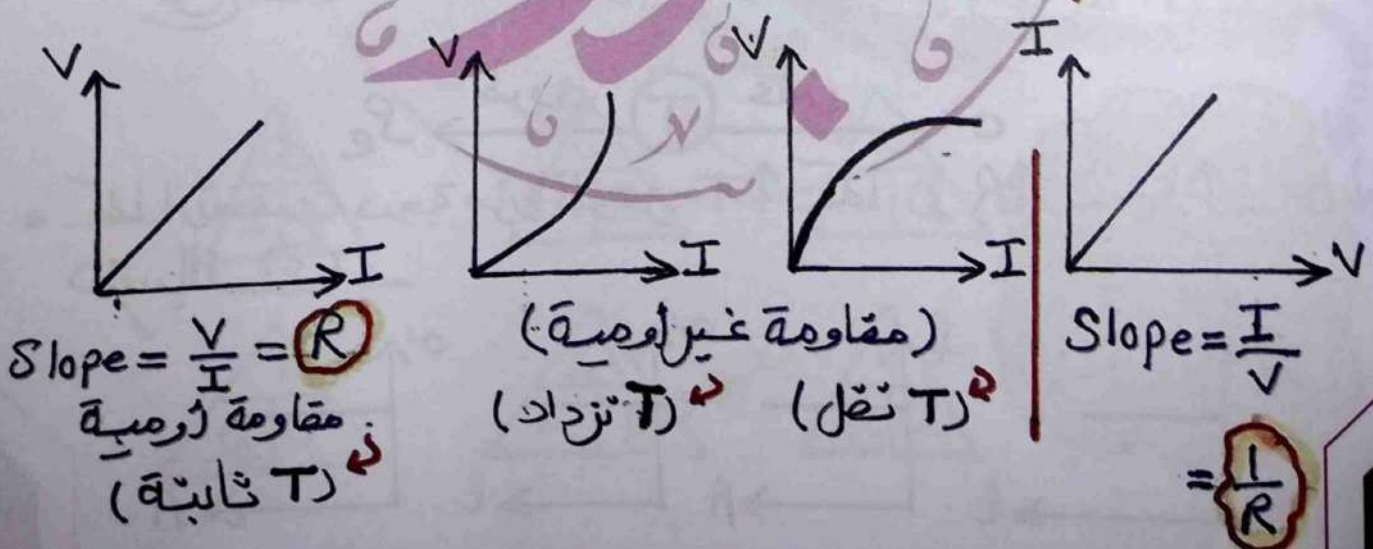 V
I
V
I
V
I
I
V
Slope = V/I = R
مقاومة أومية
(T ثابتة)
(مقاومة غير أومية)
(T تزداد)
(T تقل)
Slope = I/V
= 1/R